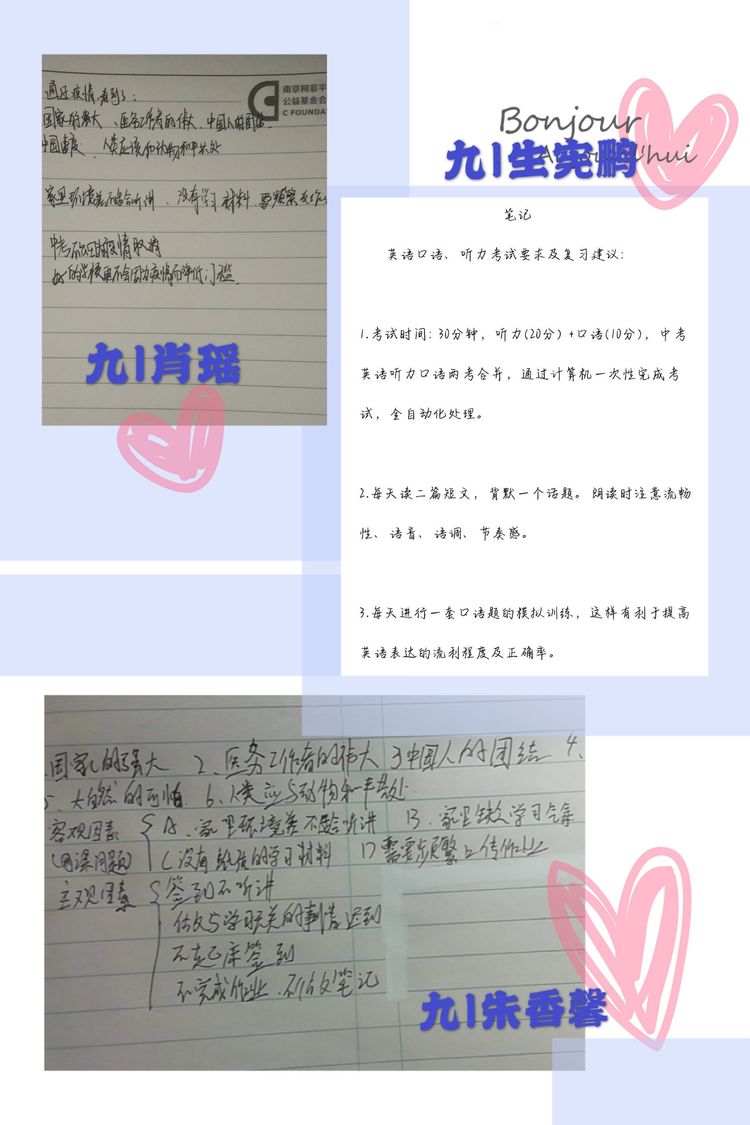 通过疫情,看到了:
国家的强大、医务工作者的伟大、中国人的团结
中国速度、人类应该和动物和平共处
家里环境差不适合听讲、没有学习材料、要频繁交作
中考不会因为疫情取消
好的学校更不会因为疫情而降低门槛
南京柯菲平
公益基金会
C FOUNDA
九1肖瑶
Bonjour
九1生奕鹏
笔记
英语口语、听力考试要求及复习建议:
1.考试时间:30分钟,听力(20分)+口语(10分),中考
英语听力口语两考合并,通过计算机一次性完成考
试,全自动化处理。
2.每天读二篇短文,背默一个话题。朗读时注意流畅
性、语音、语调、节奏感。
3.每天进行一套口语题的模拟训练,这样有利于提高
英语表达的流利程度及正确率。
国家的强大 2、医务工作者的伟大 3中国人的团结 4、
5、大自然的可怕 6、人类应与动物和平共处
客观因素 A、家里环境差不适合听讲 B、家里缺少学习气氛
(网课问题) C没有纸质的学习材料 D需要频繁上传作业
主观因素 签到不听讲
做与学习无关的事情迟到
不起床签到
不完成作业、不做笔记
九1朱香馨